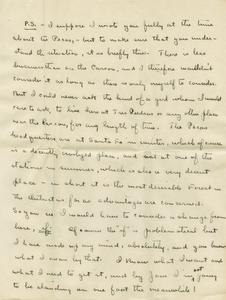 P.S. - I suppose I wrote you fully at the time
about the Pecos, - but to make sure that you under-
stand the situation, it is briefly this. There is less
in the Carson, and I therefore wouldn't
consider it as long as there is only myself to consider.
But I could never ask the kind of a girl whom I would
care to ask, to live here at Tres Piedras or any other place
near the Carson, for any length of time. The Pecos
headquarters are at Santa Fe in winter, which of course
is a decently civilized place, and out at one of the
stations in summer, which is also a very decent
place - in short it is the most desirable Forest in
the District as far as advantages are concerned.
So you see I would have to consider a change from
here, if. Of course the "if" is problematical but
I have made up my mind, absolutely, and you know
what I mean by that. I know what I want and
what I need to get it, and by Jove I'm not
to be standing on one foot the meanwhile!